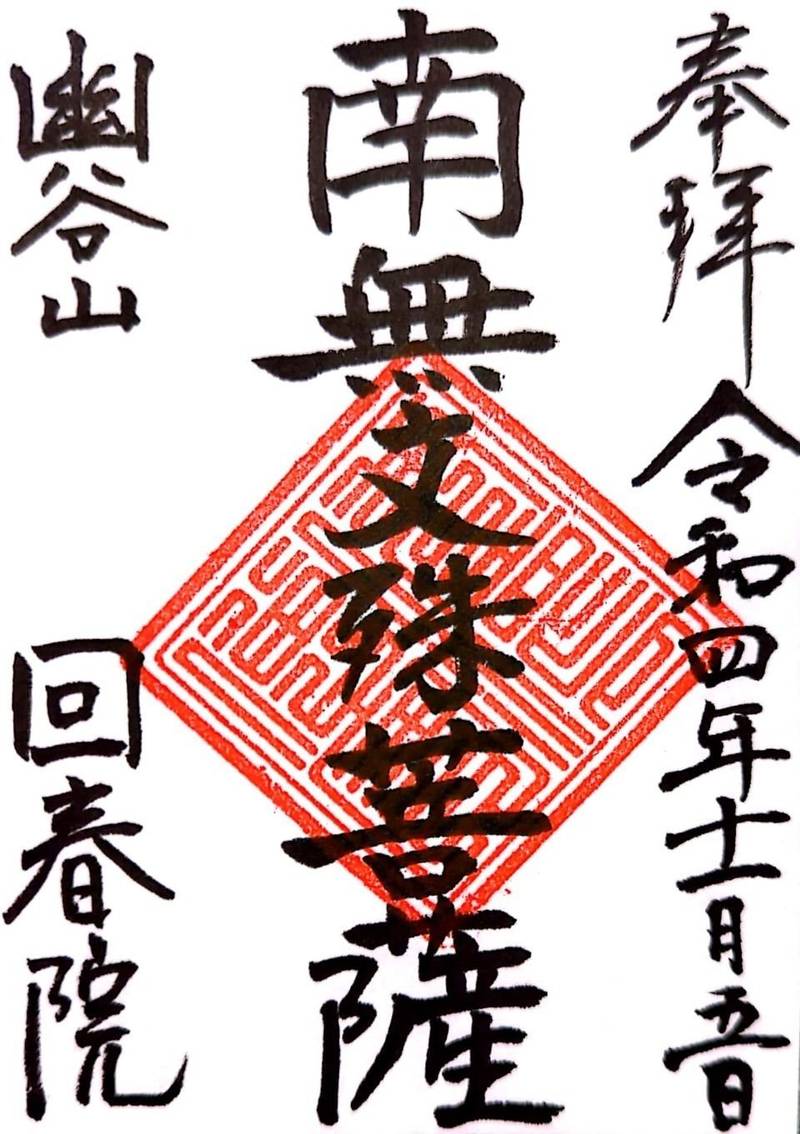 奉拝 令和四年十一月五日
南無文殊菩薩
幽谷山 回春院